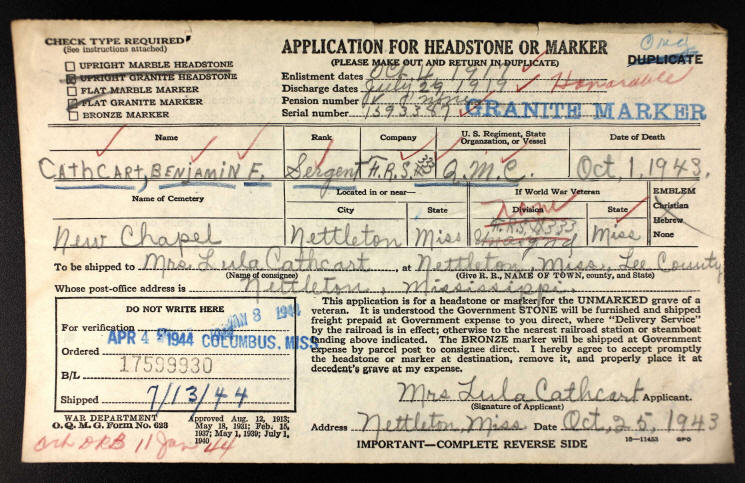 CHECK TYPE REQUIRED
(See instructions attached)
UPRIGHT MARBLE HEADSTONE
UPRIGHT GRANITE HEADSTONE
FLAT MARBLE MARKER
FLAT GRANITE MARKER
BRONZE MARKER
APPLICATION FOR HEADSTONE OR MARKER
(PLEASE MAKE OUT AND RETURN IN DUPLICATE)
Orig
DUPLICATE
Enlistment dates Oct. 4, 1917
Discharge dates July 29, 1919 Honorable
Pension number
Serial number 1593357
GRANITE MARKER
Name
Rank
Company
U. S. Regiment, State Organzation, or Vessel
Date of Death
Cathcart, Benjamin F. Sergent F.R.S. #333 Q.M.C. Oct, 1, 1943.
Name of Cemetery
Located in or near—
City
State
If World War Veteran
Division
State
EMBLEM
Christian
Hebrew
None
New Chapel Nettleton Miss Miss
To be shipped to Mrs. Lula Cathcart, at Nettleton, Miss., Lee County
(Name of consignee) (Give R. R., NAME OF TOWN, county, and State)
Whose post-office address is Nettleton, Mississippi.
DO NOT WRITE HERE
For verification JAN 8 1944
APR 4 1944 COLUMBUS, MISS
Ordered
17599930
B/L
Shipped 7/13/44
This application is for a headstone or marker for the UNMARKED grave of a
veteran. It is understood the Government STONE will be furnished and shipped
freight prepaid at Government expense to you direct, where "Delivery Service"
by the railroad is in effect; otherwise to the nearest railroad station or steamboat
landing above indicated. The BRONZE marker will be shipped at Government
expense by parcel post to consignee direct. I hereby agree to accept promptly
the headstone or marker at destination, remove it, and properly place it at
decedent's grave at my expense.
Mrs Lula Cathcart Applicant.
(Signature of Applicant)
Address Nettleton, Miss Date Oct, 25, 1943
WAR DEPARTMENT
O. Q. M. G. Form No. 623
Approved Aug. 12, 1913;
May 18, 1931; Feb. 15,
1937; May 1, 1939; July 1,
1940.
IMPORTANT—COMPLETE REVERSE SIDE
16—11453 GPO
DRB 11 Jan 44